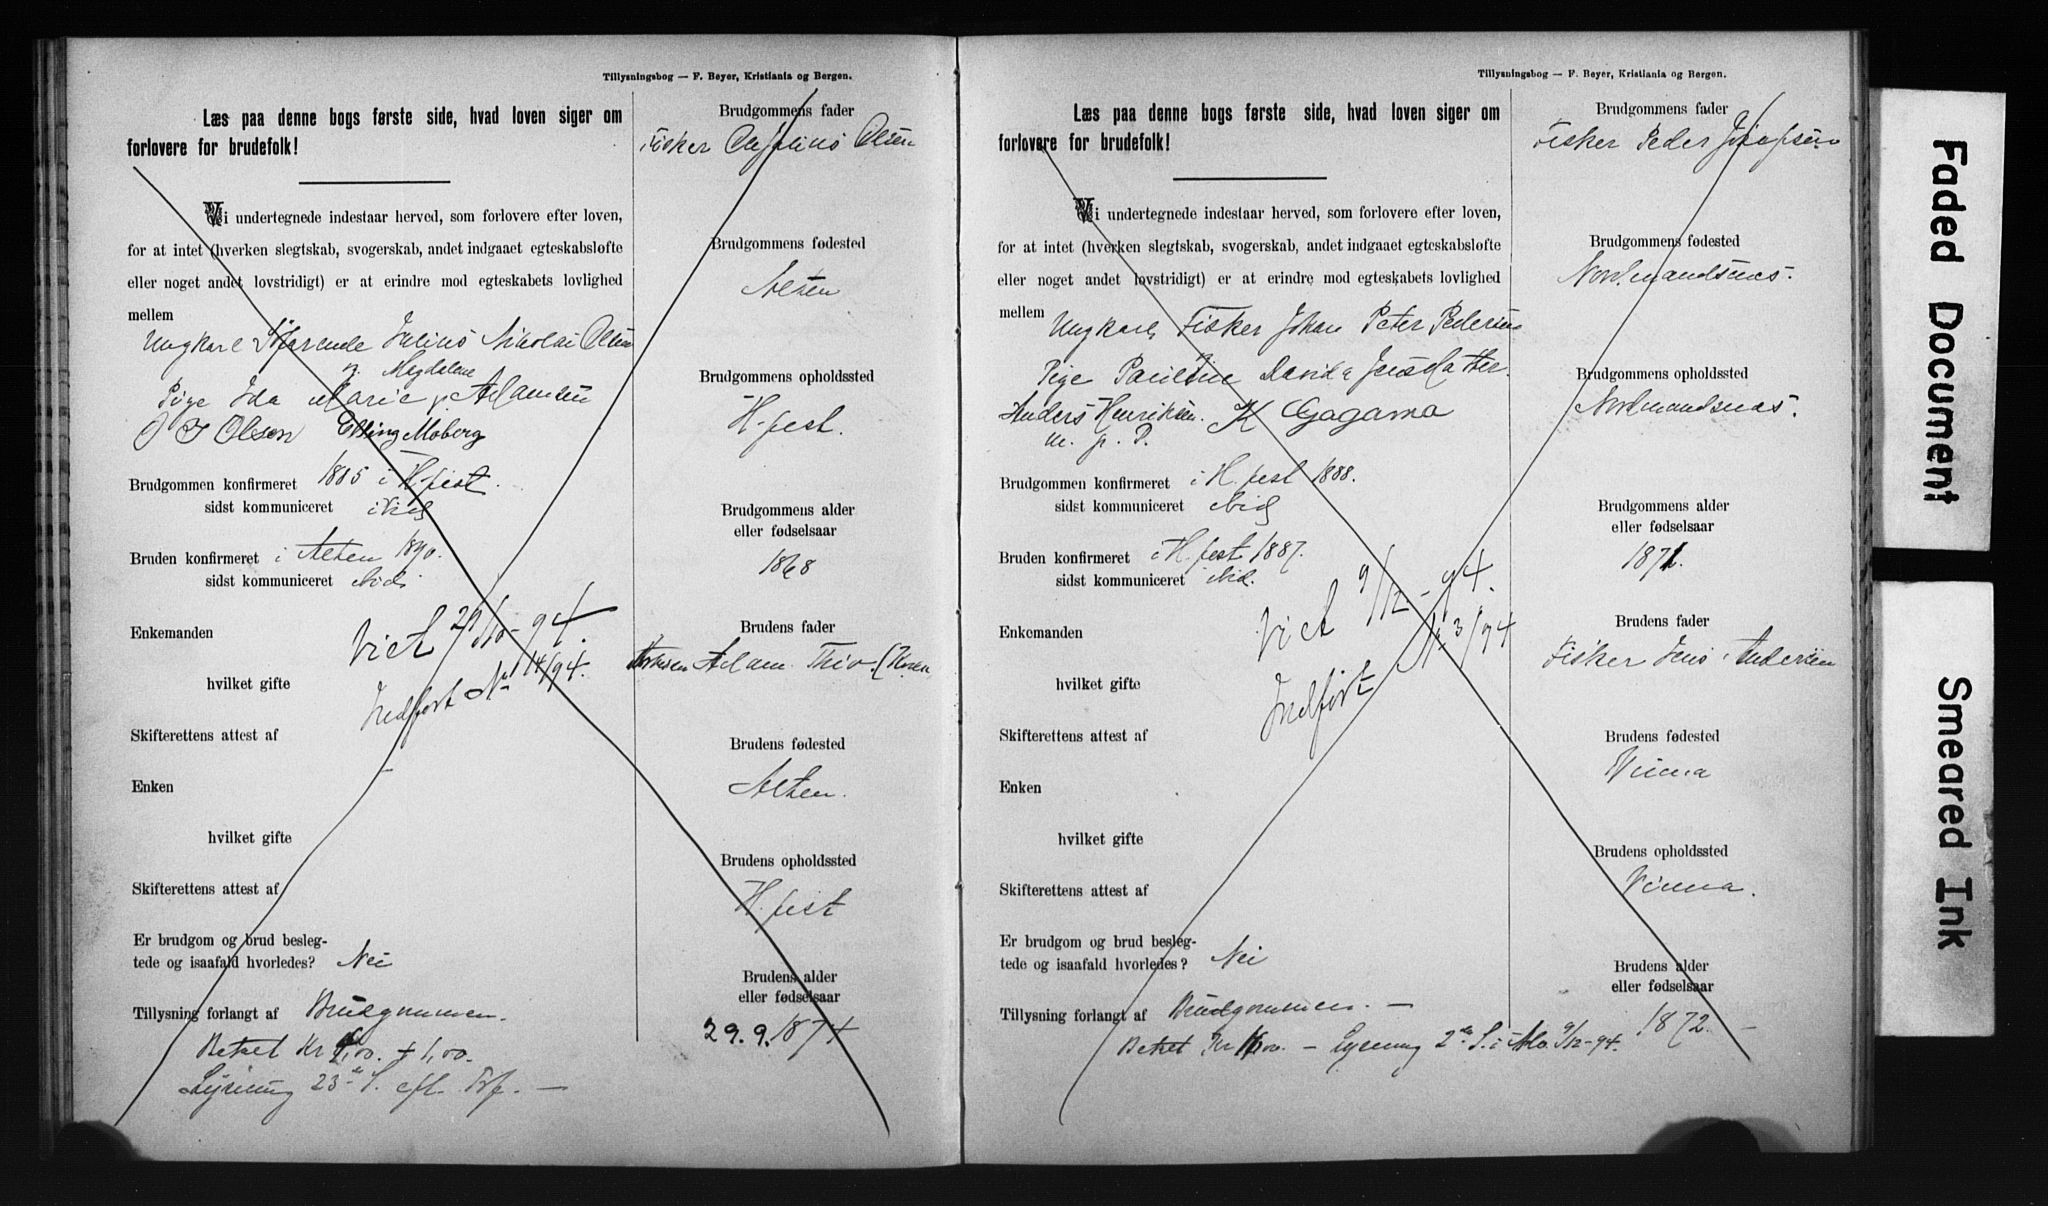 Tillysningsbog — F. Beyer, Kristiania og Bergen.
Læs paa denne bogs første side, hvad loven siger om
forlovere for brudefolk!
Vi undertegnede indestaar herved, som forlovere efter loven,
for at intet (hverken slegtskab, svogerskab, andet indgaaet egteskabsløfte
eller noget andet lovstridigt) er at erindre mod egteskabets lovlighed
mellem
Ungkarl Julius Nikolai Olsen
Magdalene
Pige Ida Marie Adamsen
O J Olsen Elling Moberg
Brudgommen konfirmeret 1885 i H.fest.
sidst kommuniceret
Bruden konfirmeret i Alten 1890.
sidst kommuniceret
Enkemanden Viet 29/10-94.
hvilket gifte Indført No 14/94.
Skifterettens attest af
Enken
hvilket gifte
Skifterettens attest af
Er brudgom og brud besleg-
tede og isaafald hvorledes? Nei
Tillysning forlangt af Brudgommen.
Betalt Kr 4,00 + 1,00.
Lysning 23de S. eft. Tref. —
Brudgommens fader
Fisker Ole Julius Olsen
Brudgommens fødested
Alten
Brudgommens opholdssted
H.fest.
Brudgommens alder
eller fødselsaar
1868
Brudens fader
Adam Thio (Kven
Brudens fødested
Alten.
Brudens opholdssted
H.fest
Brudens alder
eller fødselsaar
29.9.1874
Tillysningsbog — F. Beyer, Kristiania og Bergen.
Læs paa denne bogs første side, hvad loven siger om
forlovere for brudefolk!
Vi undertegnede indestaar herved, som forlovere efter loven,
for at intet (hverken slegtskab, svogerskab, andet indgaaet egteskabsløfte
eller noget andet lovstridigt) er at erindre mod egteskabets lovlighed
mellem
Ungkarl Fisker Johan Peter Pedersen
Pige Pauline Davida Jensdatter.
Anders Henriksen. K Gagama
m. p. P.
Brudgommen konfirmeret i H.fest 1888.
sidst kommuniceret ibid
Bruden konfirmeret i H.fest 1887.
sidst kommuniceret ibid.
Enkemanden Viet 9/12-94.
hvilket gifte Indført No 3/94
Skifterettens attest af
Enken
hvilket gifte
Skifterettens attest af
Er brudgom og brud besleg-
tede og isaafald hvorledes? Nei
Tillysning forlangt af Brudgommen. —
Betalt Kr 4,00. — Lysning 2de S. i Adv. 9/12-94.
Brudgommens fader
Fisker Peder Josefsen
Brudgommens fødested
Nordmandsnes.
Brudgommens opholdssted
Nordmandsnæs.
Brudgommens alder
eller fødselsaar
1871.
Brudens fader
Fisker Jens Andersen
Brudens fødested
Vinna
Brudens opholdssted
Vinna.
Brudens alder
eller fødselsaar
1872. —
Faded Document
Smeared Ink